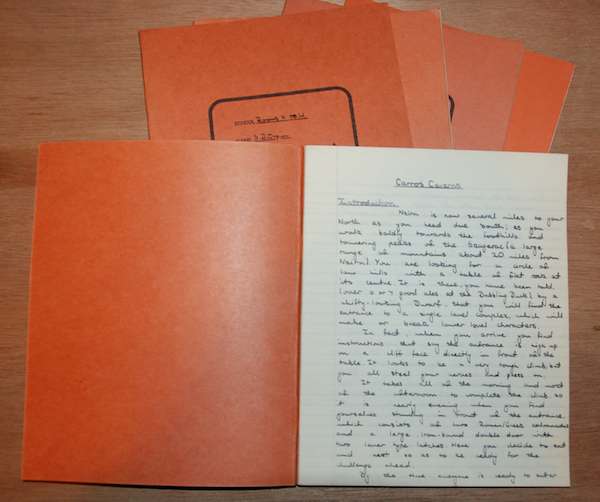 Carros Caverns
Introduction
Nairn is now several miles to your
North as you head due South; as you
walk boldly towards the foothills and
towering peaks of the a large
range of mountains about 20 miles from
You are looking for a circle of
low hills with a table of flat rock at
its centre. It is there, you have been told
(over 6 or 7 good ales at the Duck) by a
shifty-looking Dwarf, that you will find the
entrance to a single level complex, which will
make or break lower level characters.
In fact, when you arrive you find
instructions that say the entrance is high up
on a cliff face directly in front of the
table. It looks to be a very rough climb, but
you all steel your nerves and press on.
It takes all of the morning and most
of the afternoon to complete the climb, so
it is nearly evening when you find
yourselves standing in front of the entrance,
which consists of two
and a large iron-bound double door with
two lever type latches. Here you decide to eat
and rest so as to be ready for the
challenge ahead.
By the time everyone is ready to enter